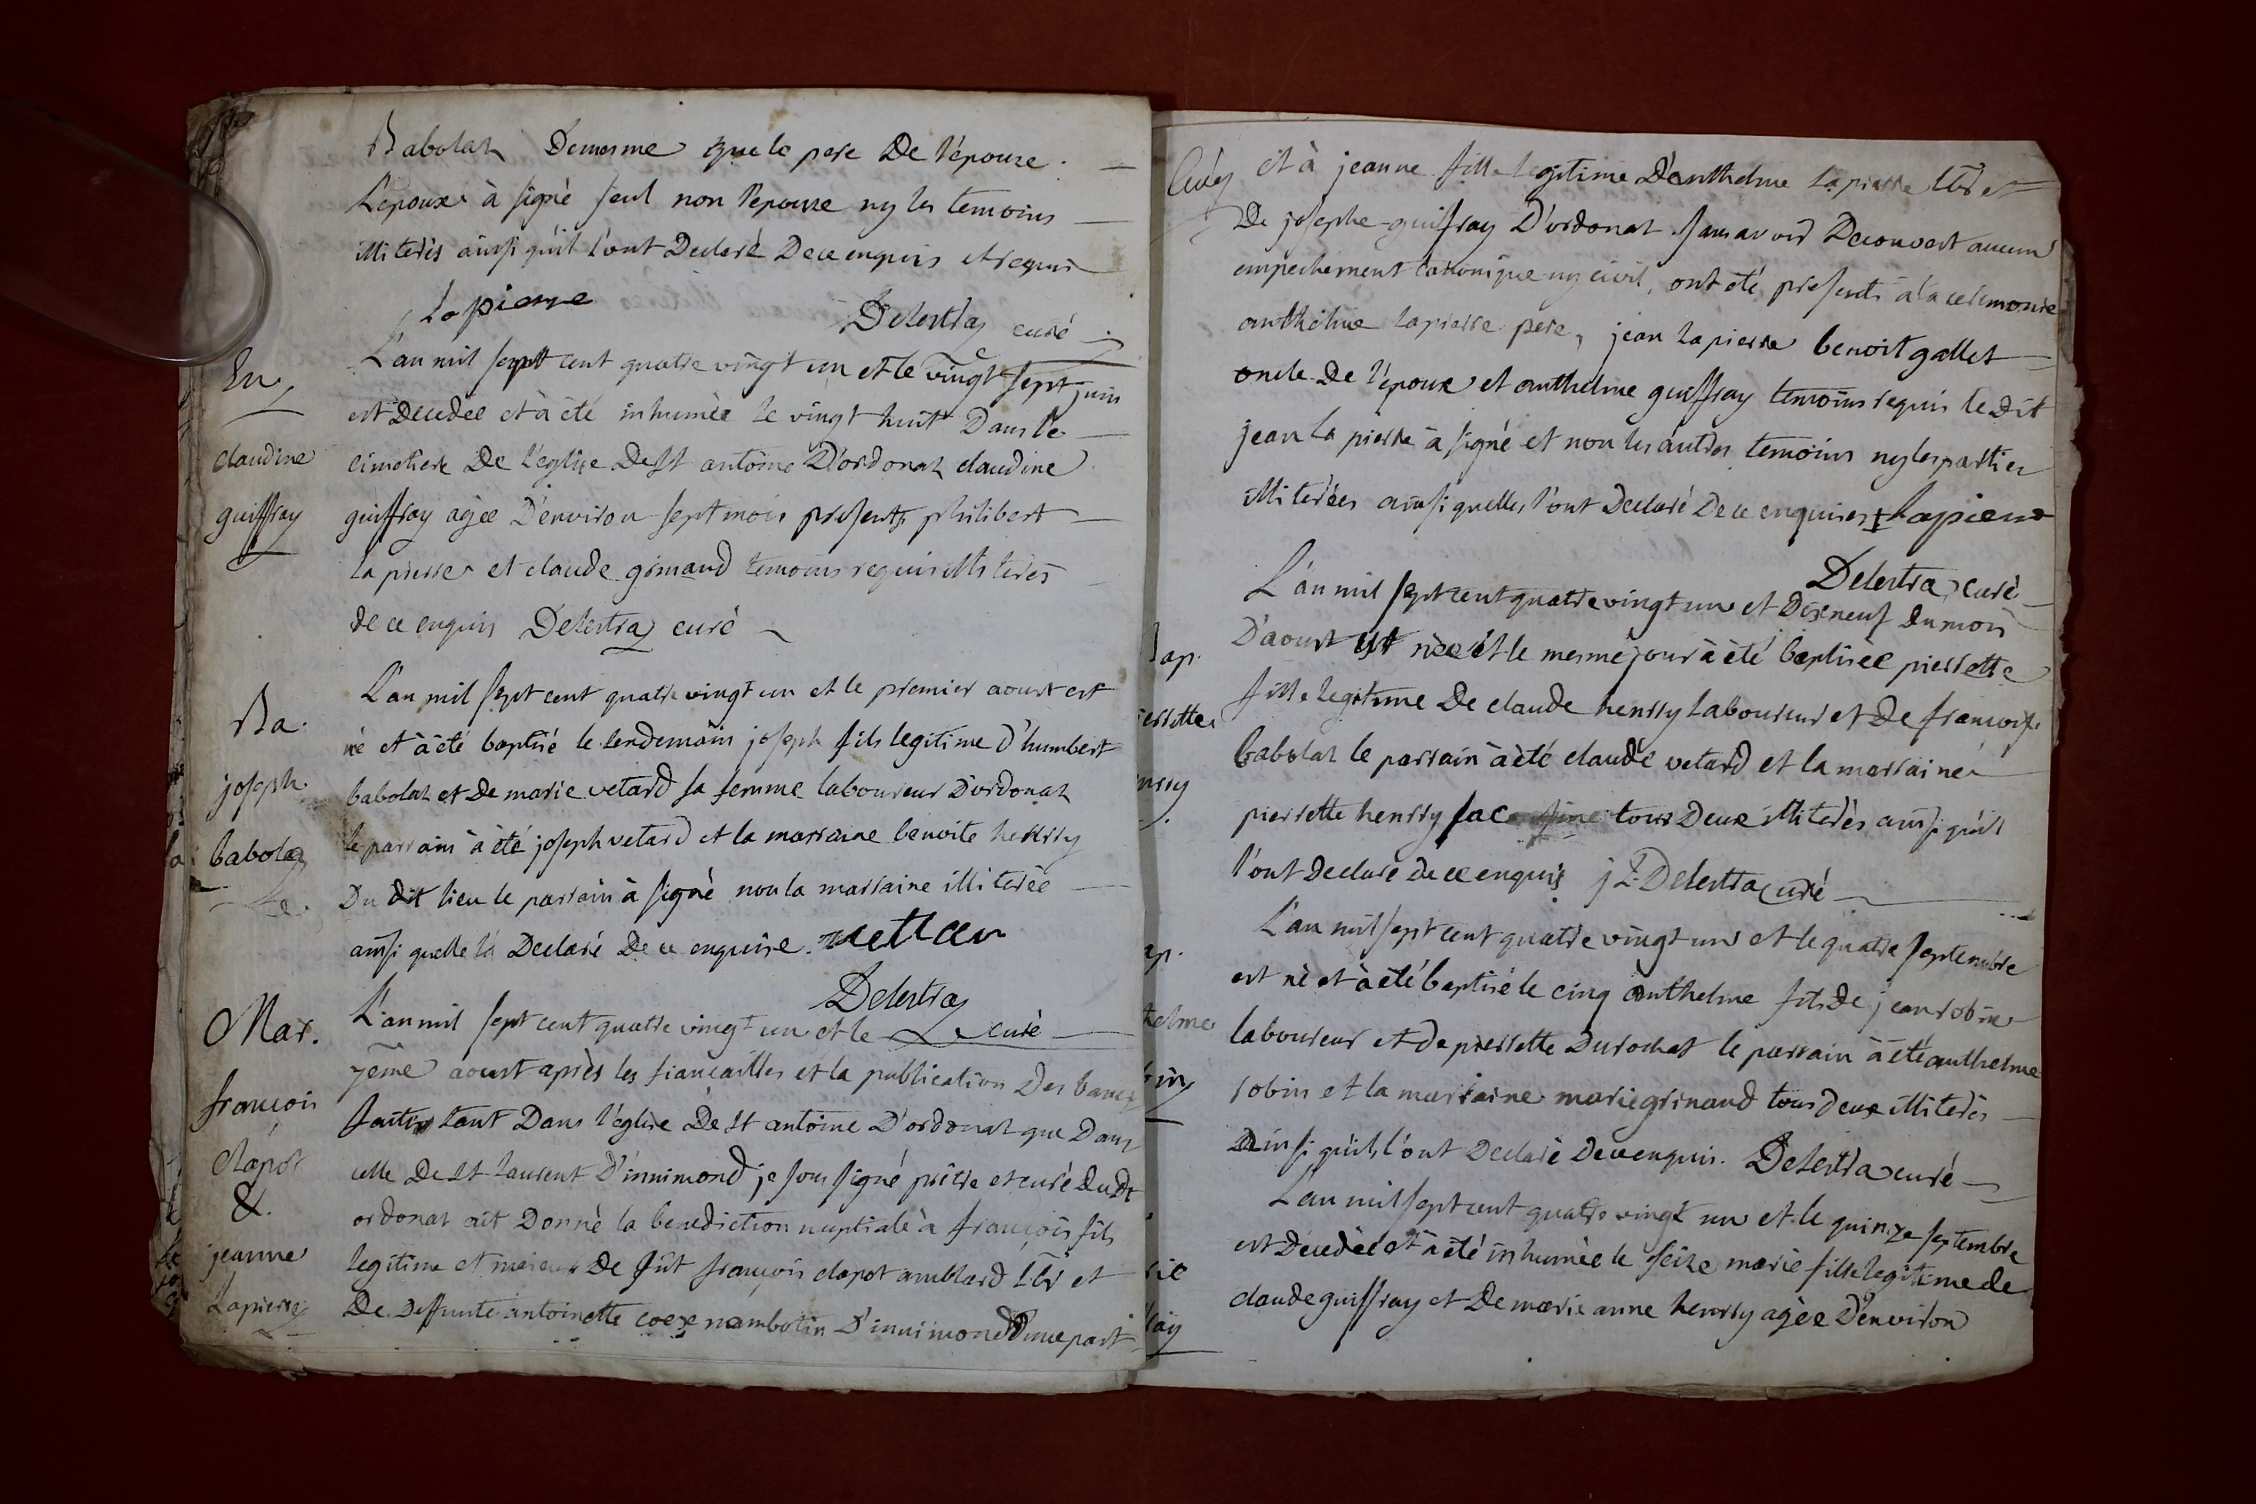 Babolat Demesme que le pere De l'épouze.
L'epoux à signé seul non l'epouze ny les temoins
illiterés ainsi qu'il l'ont Declaré De ce enquis et requis
Lapierre
Delestra curé
En
claudine
guiffray
L'an mil sept cent quatre vingt un et le vingt sept juin
est Decedée et à été inhumée le vingt huit Dans le
cimetiere De l'eglise De St antoine D'ordonat claudine
guiffray agée D'environ sept mois presents philibert
lapierre et claude grimaud temoins requis illiterés
de ce enquis Delestra curé
Ba.
joseph
babolat
L'an mil sept cent quatre vingt un et le premier aoust est
né et à été baptisé le lendemain joseph fils legitime d'humbert
babolat et De marie vetard sa femme laboureur D'ordonat
le parrain à été joseph vetard et la marraine benoite henrry
Du dit lieu le parrain à signé non la marraine illiterée
ainsi quelle l'a Declaré De ce enquise.
Delestra
curé
Mar.
françois
clapot
&.
jeanne
Lapierre
L'an mil sept cent quatre vingt un et le
7eme aoust après les fiancailles et la publication Des bancs
faitte tant Dans l'eglise De St antoine D'ordonat que Dans
celle De St laurent D'innimond je soussigné prêtre et curé Dudt
ordonat ait Donné la benediction nuptiale à françois fils
legitime et De fût françois clapot amblard et
De Deffunte antoinette coex nambotin D'innimond D'une part
et à jeanne fille legitime D'anthelme lapierre et
De josephe guiffray D'ordonat sans avoir Decouvert aucun
empechement canonique ny civil, ont été presents à la ceremonie
anthelme lapierre pere, jean lapierre benoit gallet
oncle De l'epoux et anthelme guiffray temoins requis le Dit
jean la pierre à signé et non les autres temoins ny les parties
illiterées ainsi quelles l'ont Declaré De ce enquises Lapierre
Delestra curé
Bap.
ierrette
enrry
L'an mil sept cent quatre vingt un et Dix neuf du mois
D'aoust est née et le mesme jour à été baptisée pierrette
fille legitime De claude henrry laboureur et De francoise
babolat le parrain à été claude vetard et la marraine
pierrette henrry sa cousine tous Deux illiterés ainsi qu'il
l'ont declaré de ce enquis j Delestra curé
ap.
thelme
bin
L'an mil sept cent quatre vingt un et le quatre septembre
est né et à été baptisé le cinq anthelme fils De jean robin
laboureur et de pierrette Durochat le parrain à été anthelme
robin et la marraine marie grimaud tous deux illiterés
ainsi qu'ils l'ont Declaré De ce enquis. Delestra curé
rie
ray
L'an mil sept cent quatre vingt un et le quinze septembre
est Decedée et à été inhumée le seize marie fille legitime de
claude guiffray et De marie anne henrry agée D'environ